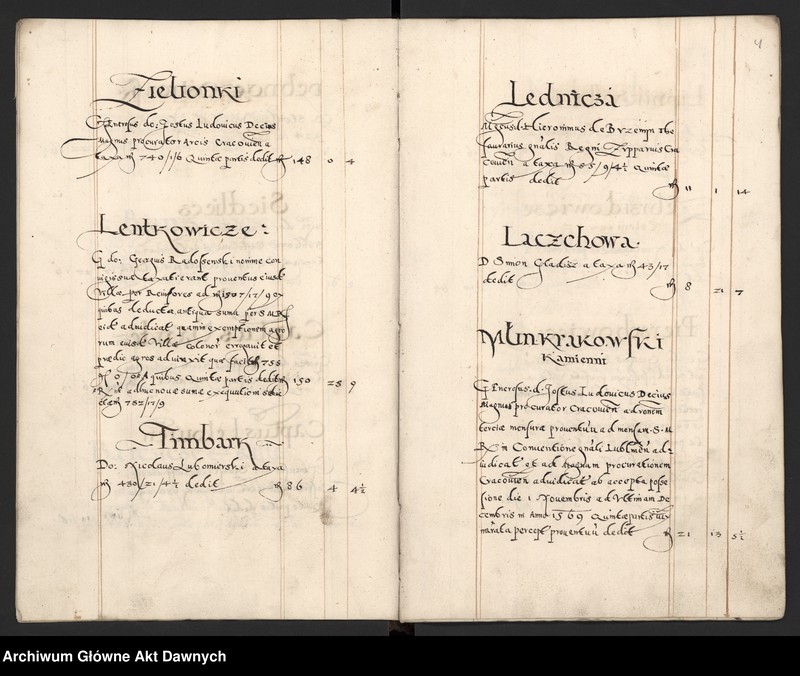 Zielionki
Generosus do: Jostus Ludovicus Decius
Magnus procurator Arcis Cracovien a
taxa m 740/1/6 Quintæ partis dedit m 148 0 4
Lentkowicze:
G do: Georgius Radossenski nomine con
taxati erant proventus eiusd
Villæ per Reuisores ad m 1507/17/9 ex
quibus deducta antiqua suma per S M R
adiudicat exemptionem agro
rum eiusd Villæ colonos erogavit et
prædio agros adiunxit quæ facit m 755
A quibus Quintæ partis dedit m 150 28 9
R
m 752/17/9
Timbark
Do: Nicolaus Lubomierski a taxa
m 430/21/4½ dedit m 86 4 4½
4
Lednicza
Hieronimus de Brzezmi the
saurarius gnalis Regni Zupparius Cra
covien a taxa m 55/9/4½ Quintæ
partis dedit m 11 1 14
Laczchowa
D Simon Gladisz a taxa m 43/17
dedit m 8 21 7
Młin krakowski
Kamienni
Generosus d. Jostus Ludovicus Decius
Magnus procurator Cracovien ad ronem
terciæ mensuræ proventuu ad mensam S M
R in Conventione gnali Lublinen ad
iudicat et ad Magnam procurationem
Cracovien adiudicat ab accepta posse
sione die 1 Nouembris ad Vltimam De
cembris in Anno 1569 Quintæ partis
percept proventuu dedit m 21 13 5½
Archiwum Główne Akt Dawnych